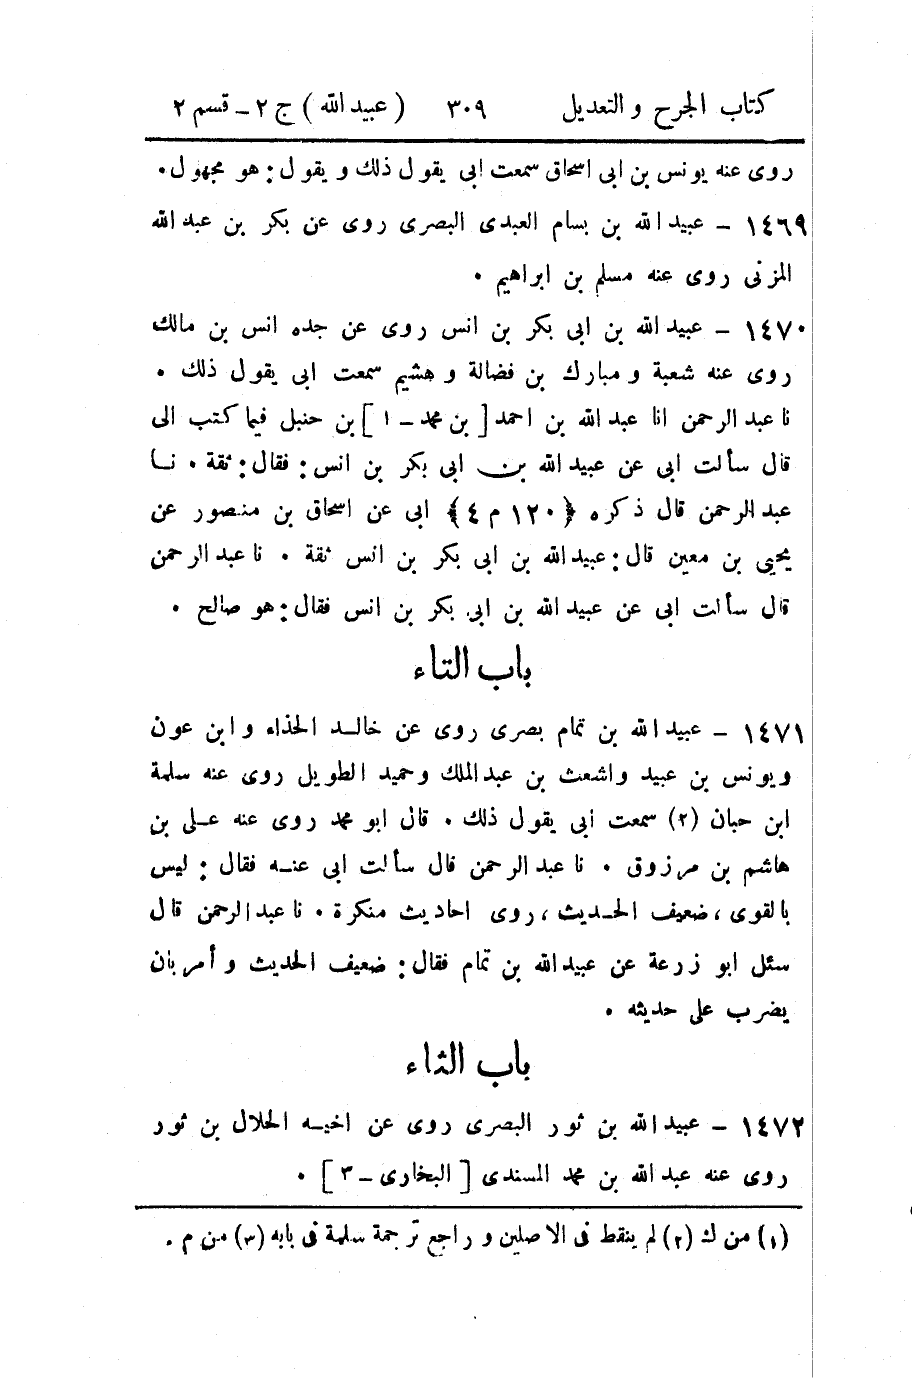 كتاب الجرح والتعديل ٣٠٩ (عبيد الله) ج ٢ - قسم ٢
روى عنه يونس بن ابى اسحاق سمعت ابى يقول ذلك ويقول: هو مجهول.
١٤٦٩ - عبيد الله بن بسام العبدى البصرى روى عن بكر بن عبد الله
المزنى روى عنه مسلم بن ابراهيم.
١٤٧٠ - عبيد الله بن ابى بكر بن انس روى عن جده انس بن مالك
روى عنه شعبة ومبارك بن فضالة وهشيم سمعت ابى يقول ذلك.
نا عبد الرحمن انا عبد الله بن احمد [بن محمد - ١] بن حنبل فيما كتب الى
قال سألت ابى عن عبيد الله بن ابى بكر بن انس: فقال: ثقة. نا
عبد الرحمن قال ذكره ﴿١٢٠ م ٤﴾ ابى عن اسحاق بن منصور عن
يحيى بن معين قال: عبيد الله بن ابى بكر بن انس ثقة. نا عبد الرحمن
قال سألت ابى عن عبيد الله بن ابى بكر بن انس فقال: هو صالح.
باب التاء
١٤٧١ - عبيد الله بن تمام بصرى روى عن خالد الحذاء وابن عون
ويونس بن عبيد واشعث بن عبد الملك وحميد الطويل روى عنه سلمة
ابن حبان (٢) سمعت أبى يقول ذلك. قال ابو محمد روى عنه على بن
هاشم بن مرزوق. نا عبد الرحمن قال سألت ابى عنه فقال: ليس
بالقوى، ضعيف الحديث، روى احاديث منكرة. نا عبد الرحمن قال
سئل ابو زرعة عن عبيد الله بن تمام فقال: ضعيف الحديث وأمر بان
يضرب على حديثه.
باب الثاء
١٤٧٢ - عبيد الله بن ثور البصرى روى عن اخيه الحلال بن ثور
روى عنه عبد الله بن محمد المسندى [البخارى - ٣].
(١) من ك (٢) لم ينقط فى الاصلين وراجع ترجمة سلمة فى بابه (٣) من م.